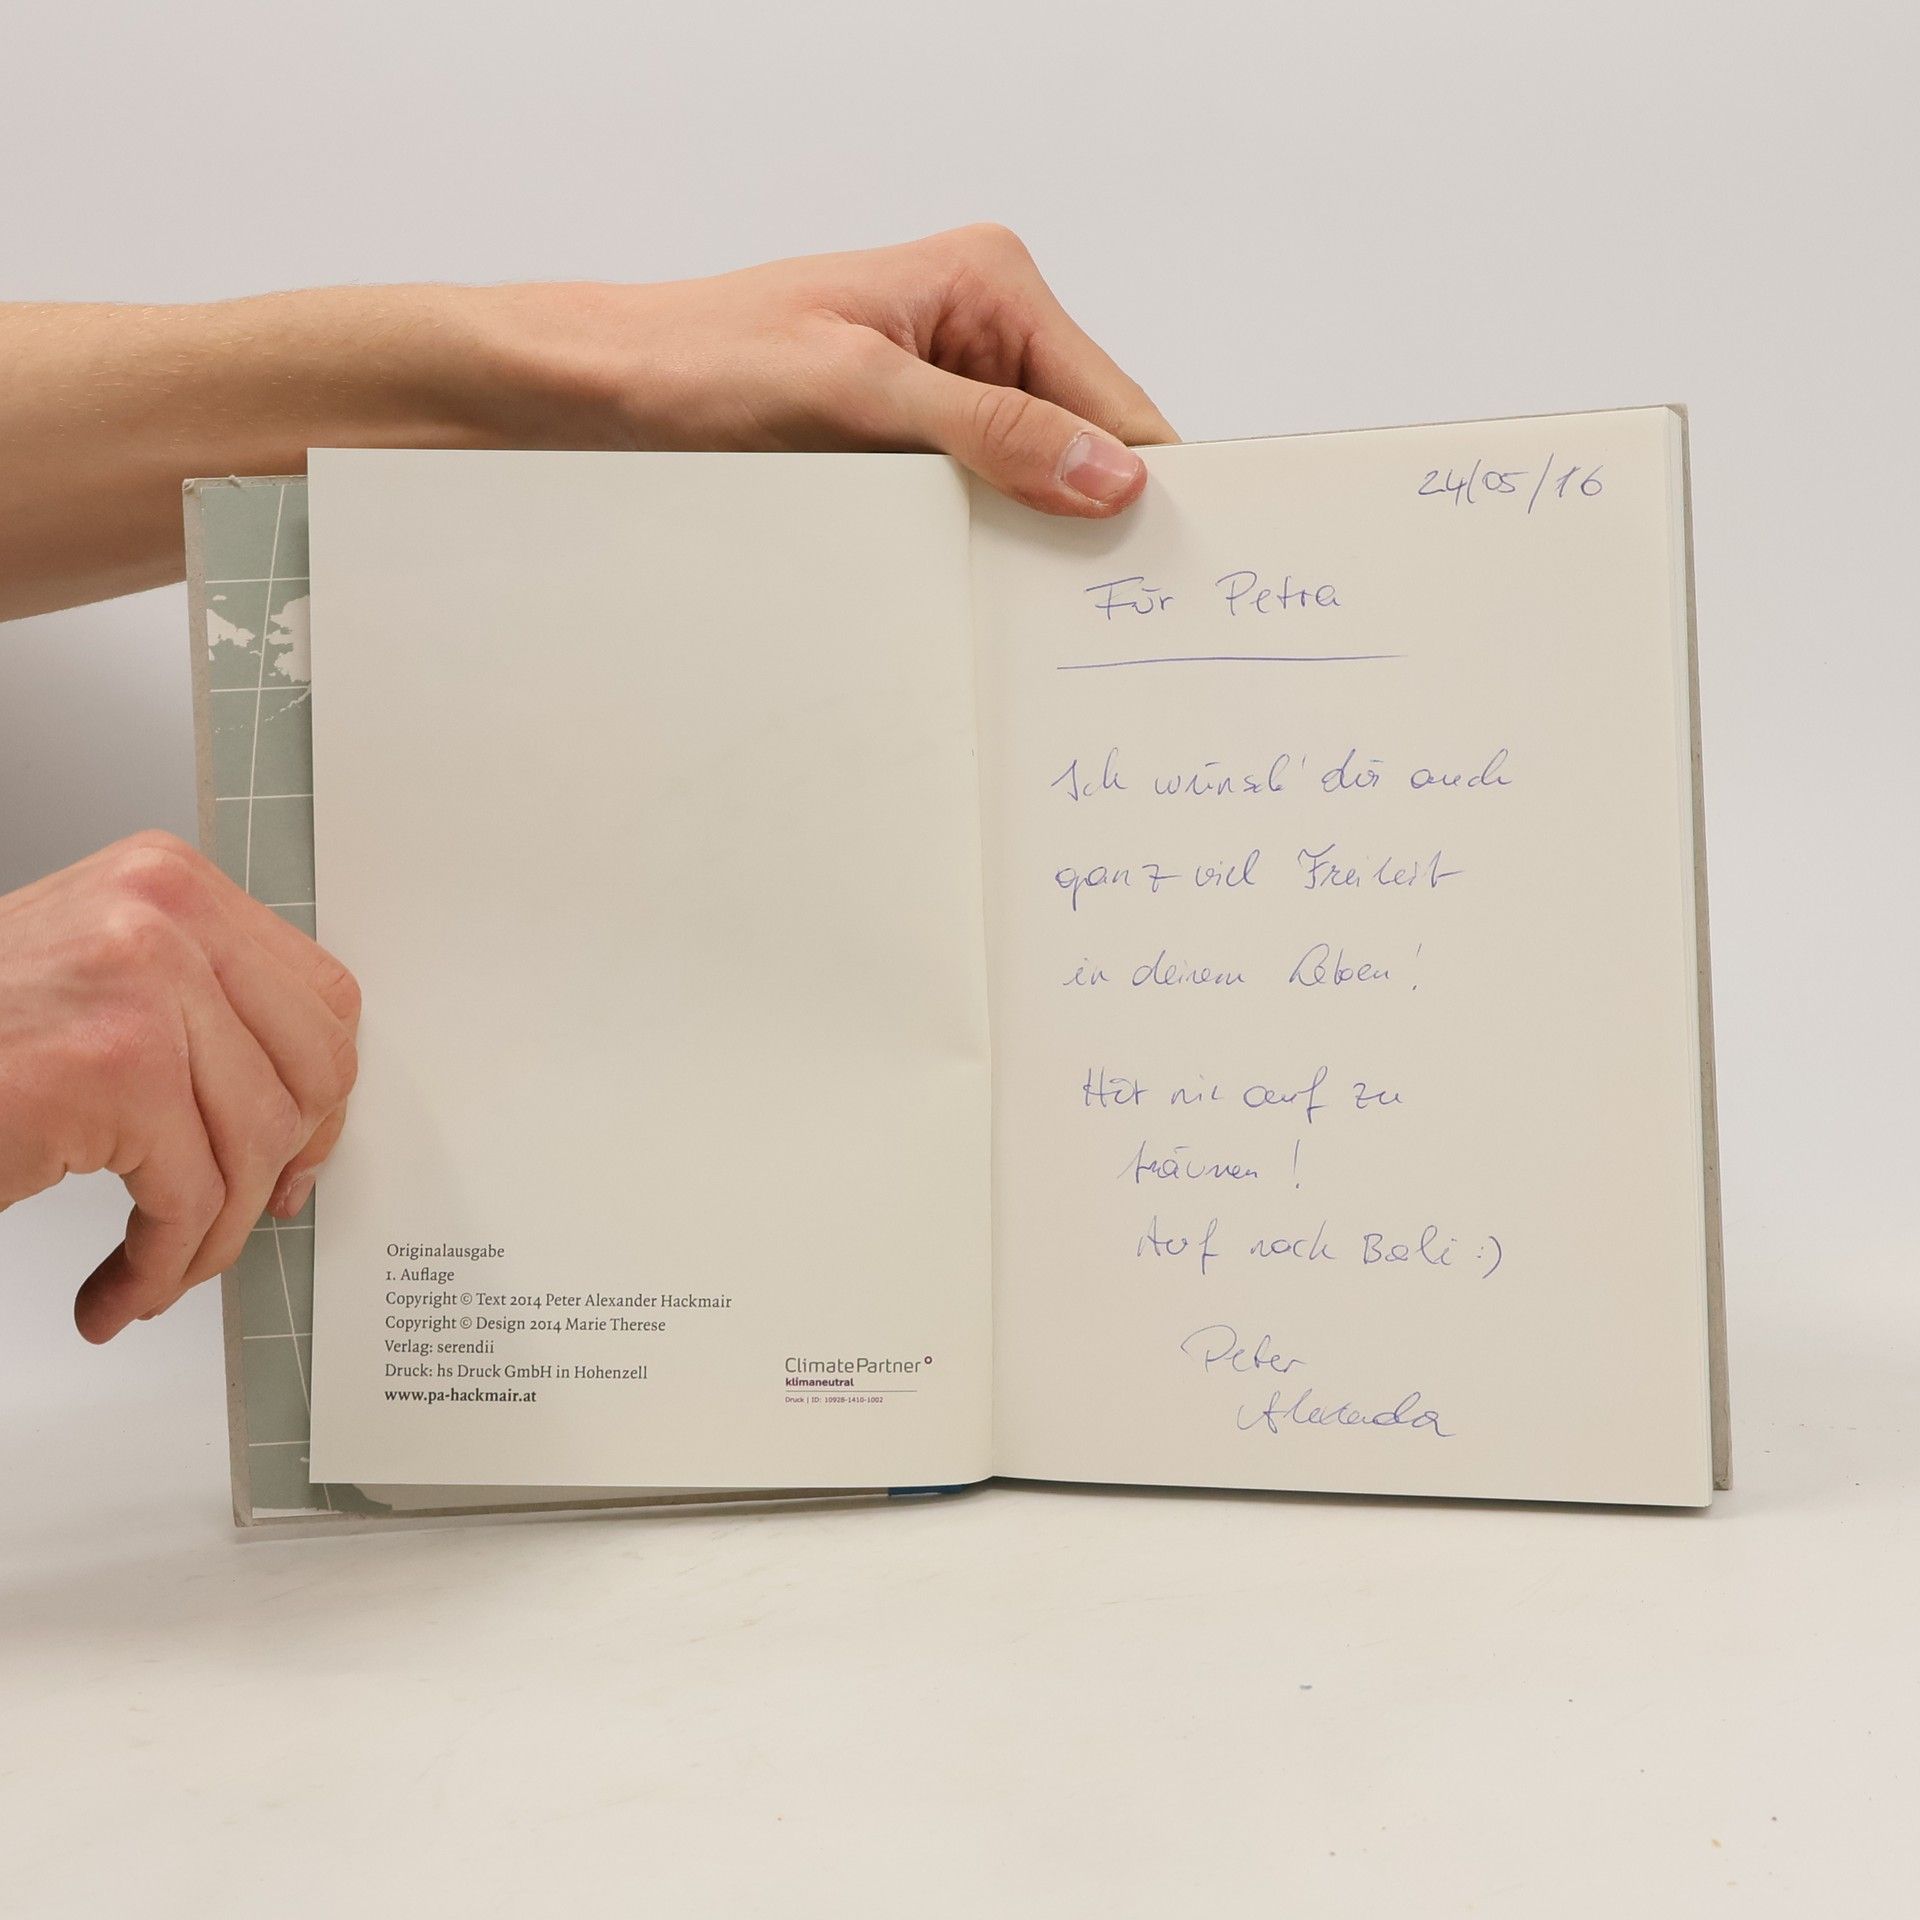 Originalausgabe
1. Auflage
Copyright © Text 2014 Peter Alexander Hackmair
Copyright © Design 2014 Marie Therese
Verlag: serendii
Druck: hs Druck GmbH in Hohenzell
www.pa-hackmair.at
ClimatePartner°
klimaneutral
Druck | ID: 10928-1410-1002
24/05/16
Für Petra
Ich wünsch' dir auch
ganz viel Freiheit
in deinem Leben!
Hör nie auf zu
träumen!
Auf nach Bali :)
Peter
Alexander